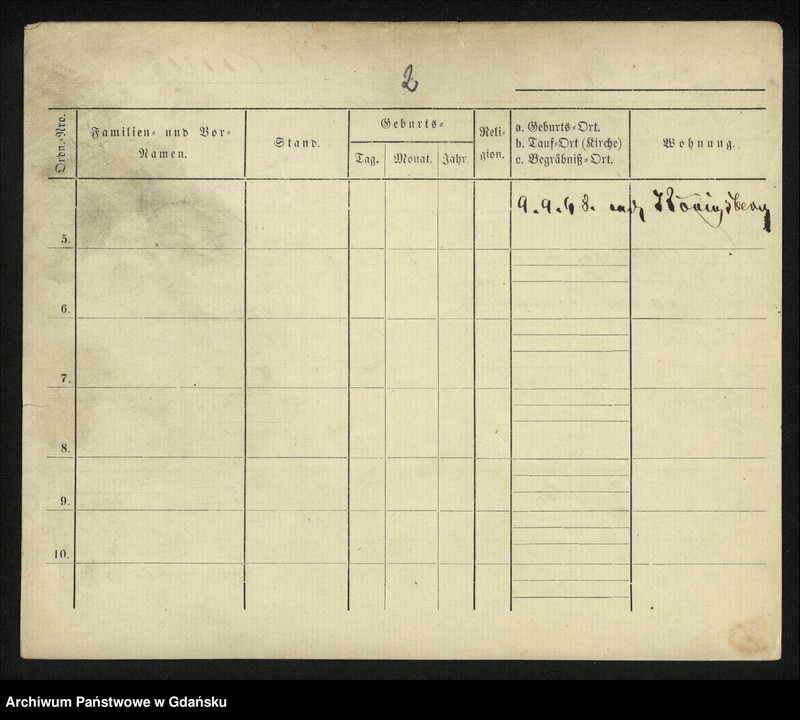 2
Ordn.-Nro.
Familien- und Vor-
Namen.
Stand.
Geburts-
Tag.
Monat.
Jahr.
Reli-
gion.
a. Geburts-Ort.
b. Tauf-Ort (Kirche)
c. Begräbniß-Ort.
Wohnung.
9. 9. 48. nach Königsberg
5.
6.
7.
8.
9.
10.
Archiwum Państwowe w Gdańsku